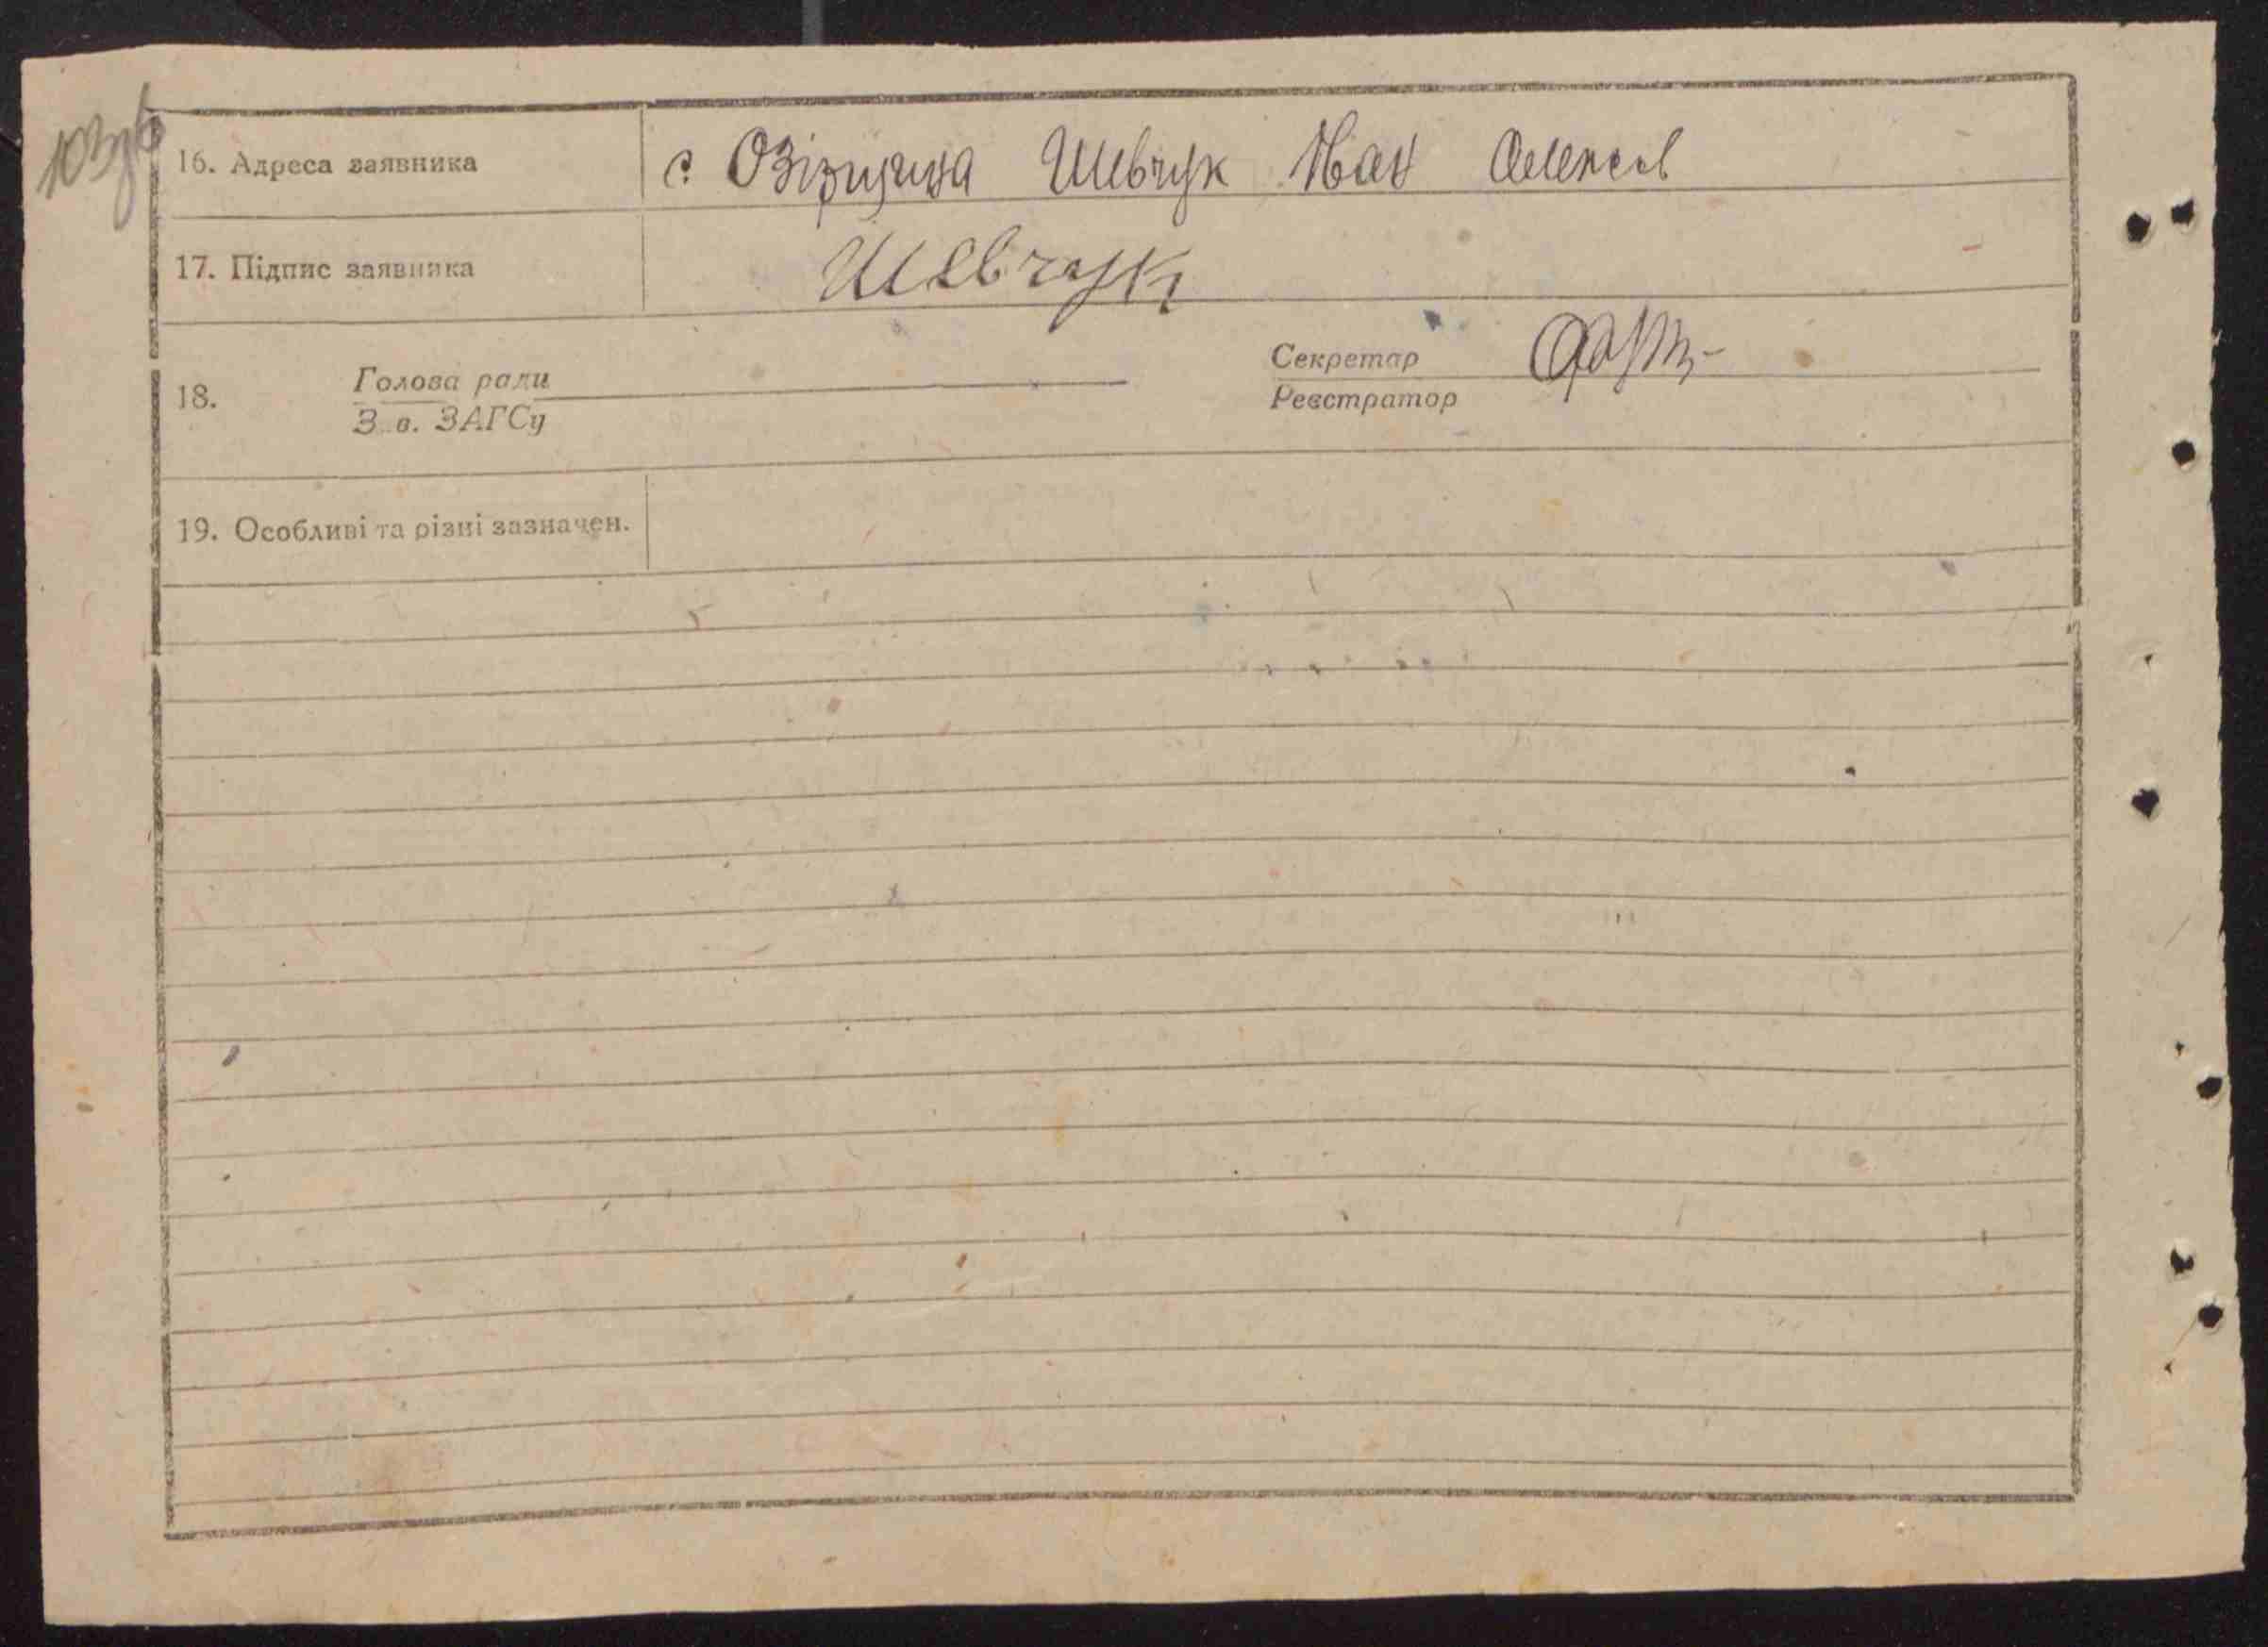 103зв
16. Адреса заявника с. Озірщина Шевчук Іван Олексі
17. Підпис заявника Шевчук
Секретар
18. Голова ради
З в. ЗАГСу
Реєстратор
19. Особливі та різні зазначен.